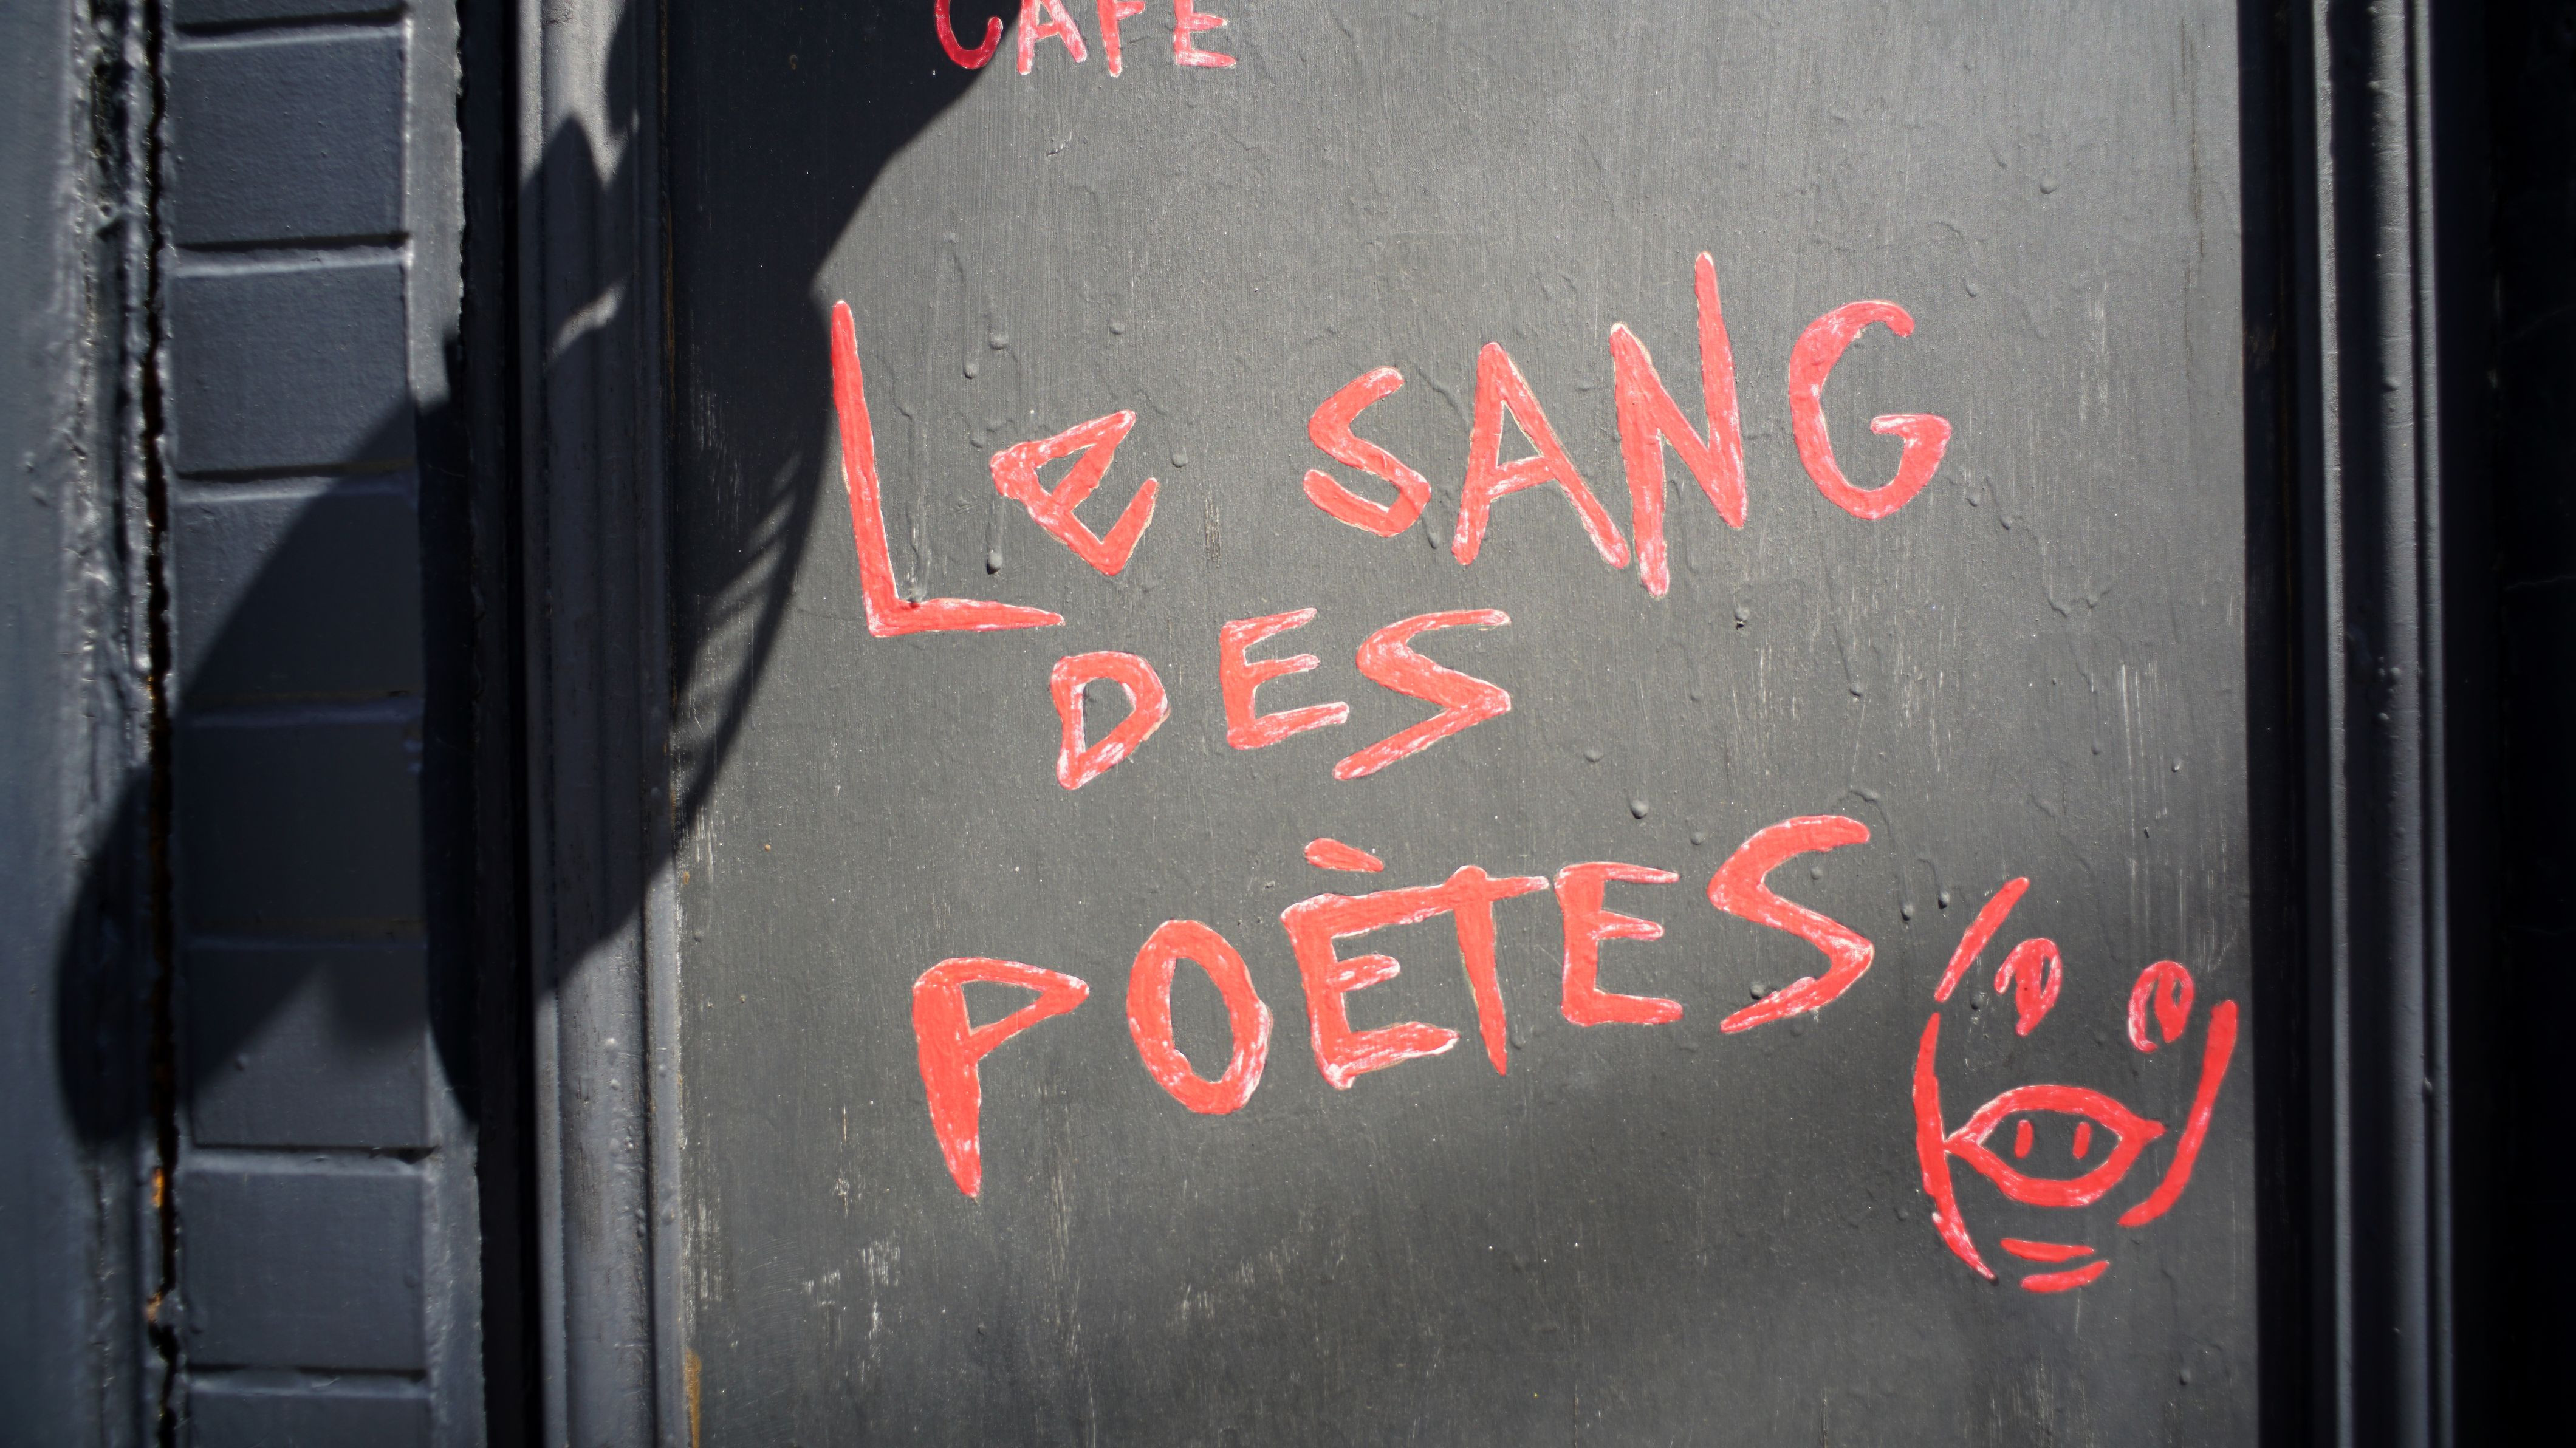 CAFE
LE SANG
DES
POÈTES